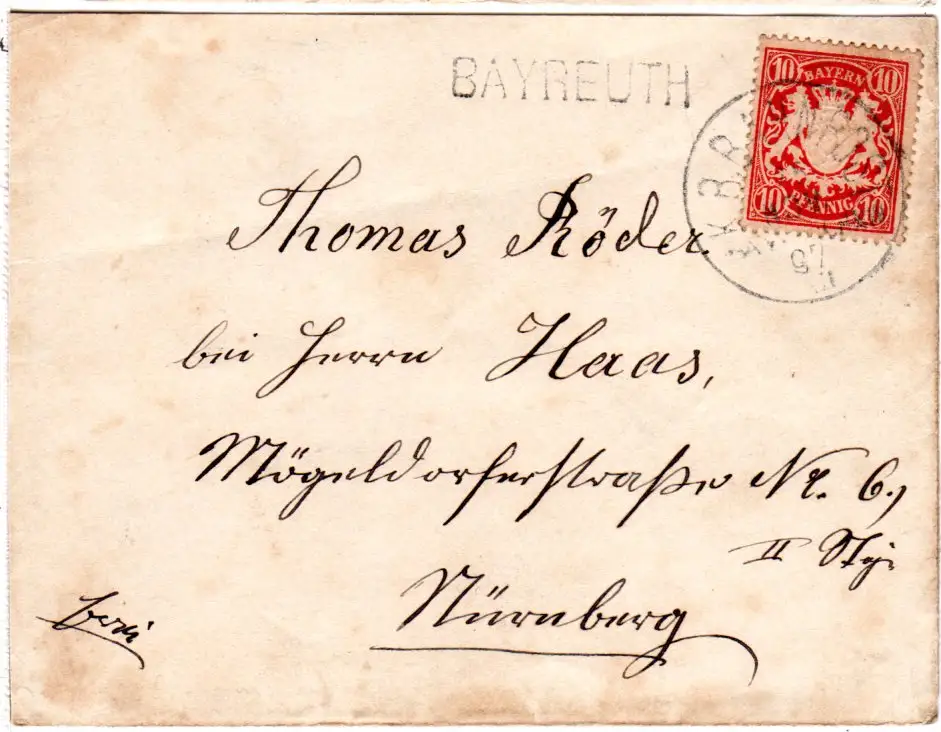 BAYREUTH
10 BAYERN 10
10 PFENNIG 10
K.B.BAHNPOST
Thomas Röder
bei Herrn Haas,
Mögeldorferstraße Nr. 6,
II Stg.
Nürnberg
frei